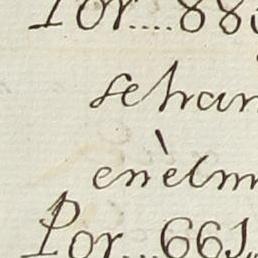 Por....88
se han
en èl m
Por...661.